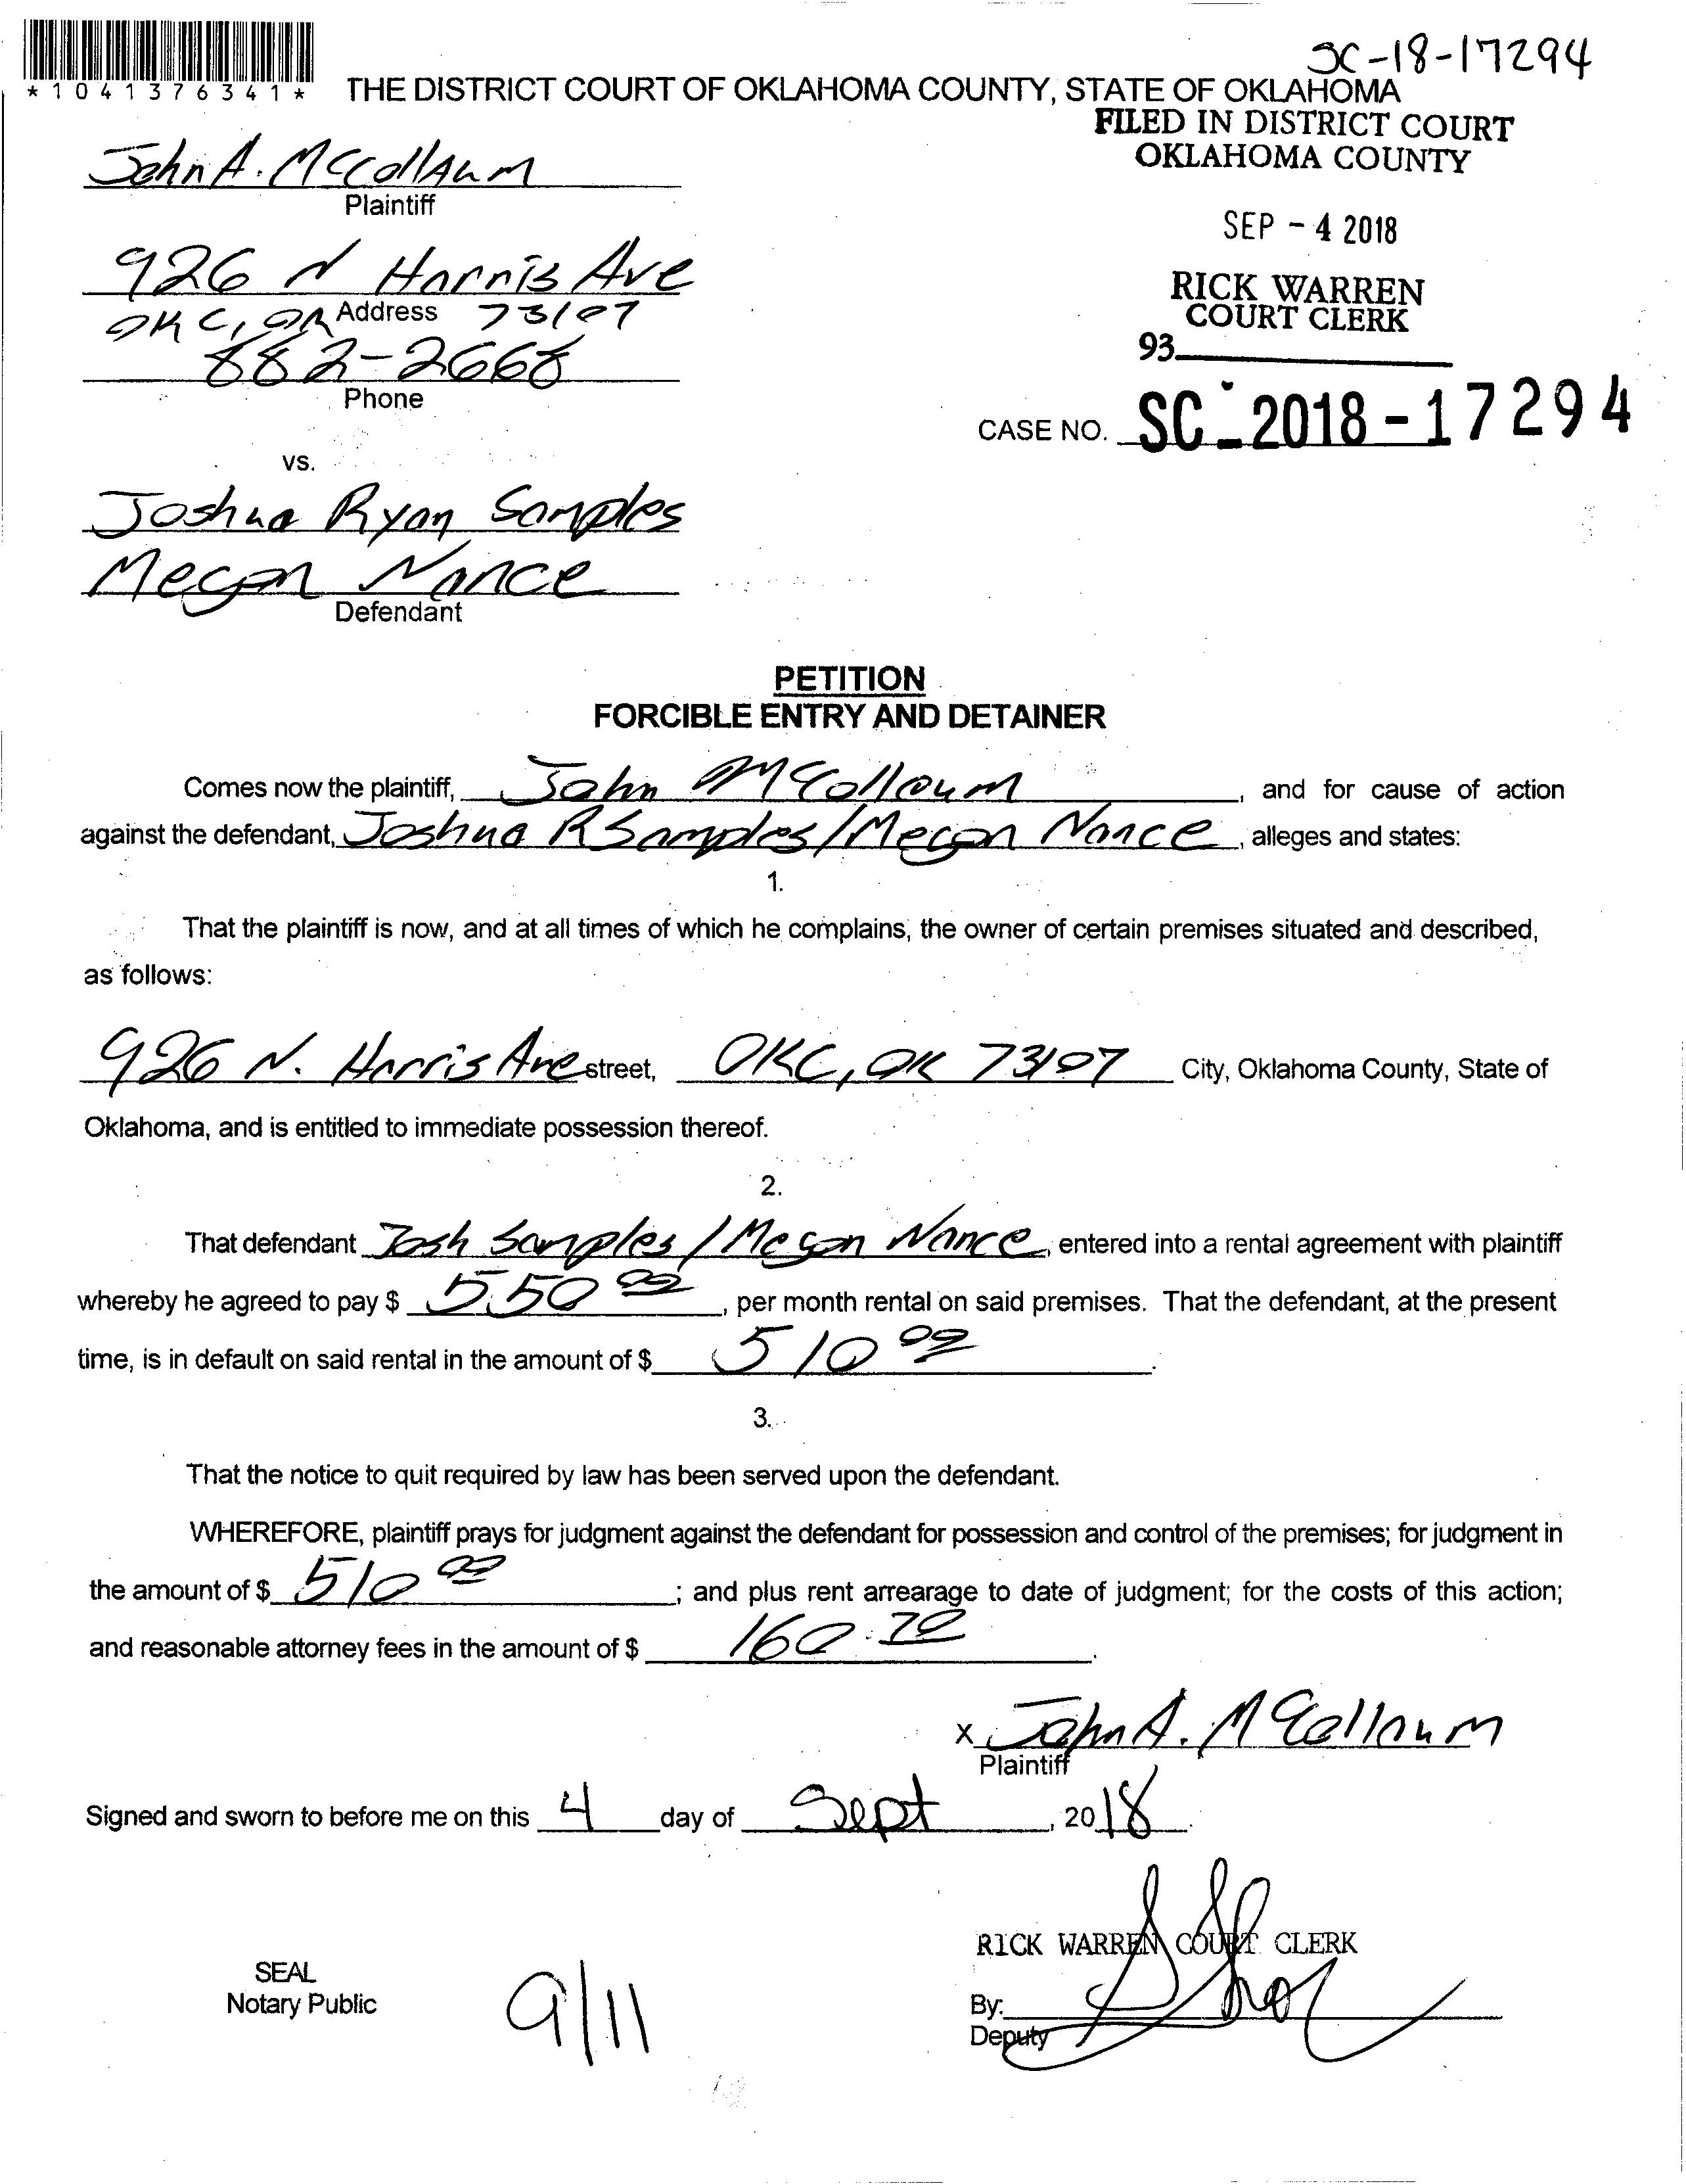 SC-18-17294
*1041376341*
THE DISTRICT COURT OF OKLAHOMA COUNTY, STATE OF OKLAHOMA
FILED IN DISTRICT COURT
OKLAHOMA COUNTY
John A. McCollaum
Plaintiff
SEP - 4 2018
926 N Harris Ave
Address
OKC, OK 73107
RICK WARREN
COURT CLERK
93
882-2668
Phone
CASE NO. SC-2018-17294
vs.
Joshua Ryan Samples
Megan Nance
Defendant
PETITION
FORCIBLE ENTRY AND DETAINER
Comes now the plaintiff, John McCollaum, and for cause of action
against the defendant, Joshua R Samples/Megan Nance, alleges and states:
1.
That the plaintiff is now, and at all times of which he complains, the owner of certain premises situated and described,
as follows:
926 N. Harris Ave street, OKC, OK 73107 City, Oklahoma County, State of
Oklahoma, and is entitled to immediate possession thereof.
2.
That defendant Josh Samples/Megan Nance, entered into a rental agreement with plaintiff
whereby he agreed to pay $ 550 00, per month rental on said premises. That the defendant, at the present
time, is in default on said rental in the amount of $ 510 00.
3.
That the notice to quit required by law has been served upon the defendant.
WHEREFORE, plaintiff prays for judgment against the defendant for possession and control of the premises; for judgment in
the amount of $ 510 00; and plus rent arrearage to date of judgment; for the costs of this action;
and reasonable attorney fees in the amount of $ 160.70.
X John A. McCollaum
Plaintiff
Signed and sworn to before me on this 4 day of Sept, 2018.
RICK WARREN COURT CLERK
SEAL
Notary Public
9/11
By:
Deputy